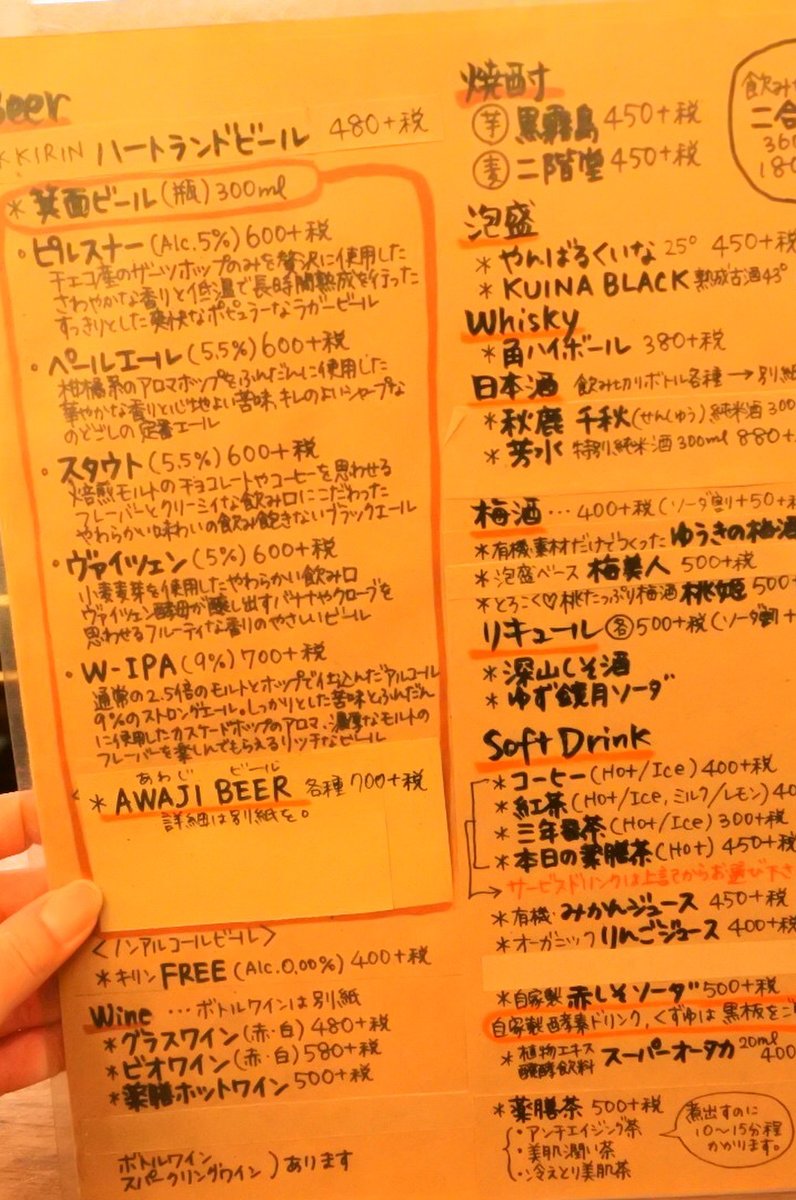 Beer
KIRIN ハートランドビール 480+税
*箕面ビール(瓶)300ml
・ピルスナー(Alc.5%)600+税
チェコ産のザーツホップのみを贅沢に使用した
さわやかな香りと低温で長時間熟成を行った
すっきりとした爽快なポピュラーなラガービール
・ペールエール(5.5%)600+税
柑橘系のアロマホップをふんだんに使用した
華やかな香りと心地よい苦味、キレのよいシャープな
のどごしの定番エール
・スタウト(5.5%)600+税
焙煎モルトのチョコレートやコーヒーを思わせる
フレーバーとクリーミィな飲み口にこだわった
やわらかい味わいの飲み飽きないブラックエール
・ヴァイツェン(5%)600+税
小麦麦芽を使用したやわらかい飲み口
ヴァイツェン酵母が醸し出すバナナやクローブを
思わせるフルーティな香りのやさしいビール
・W-IPA(9%)700+税
通常の2.5倍のモルトとホップで仕込んだアルコール
9%のストロングエール。しっかりとした苦味とふんだん
に使用したカスケードホップのアロマ、濃厚なモルトの
フレーバーを楽しんでもらえるリッチなビール
あわじ ビール
*AWAJI BEER 各種700+税
詳細は別紙を。
<ノンアルコールビール>
*キリンFREE(Alc.0,00%)400+税
Wine …ボトルワインは別紙
*グラスワイン(赤・白)480+税
*ビオワイン(赤・白)580+税
*薬膳ホットワイン500+税
ボトルワイン
スパークリングワイン)あります
焼酎
芋 黒霧島 450+税
麦 二階堂 450+税
飲み
二合
36
180
泡盛
*やんばるくいな 25° 450+税
*KUINA BLACK 熟成古酒43°
Whisky
*角ハイボール 380+税
日本酒 飲み切りボトル各種→別紙
*秋鹿 千秋(せんしゅう)純米酒300
*芳水 特別純米酒300ml 880+
梅酒…400+税(ソーダ割+50+税
*有機素材だけでつくった ゆうきの梅酒
*泡盛ベース 梅美人 500+税
*とろこく♡桃たっぷり梅酒 桃姫 500+
リキュール 各500+税(ソーダ割+
*深山しそ酒
*ゆず鏡月ソーダ
Soft Drink
*コーヒー(Hot/Ice)400+税
*紅茶(Hot/Ice,ミルク/レモン)40
*三年番茶(Hot/Ice)300+税
*本日の薬膳茶(Hot)450+税
サービスドリンクは上記からお選び下さ
*有機みかんジュース 450+税
*オーガニックりんごジュース 400+税
*自家製 赤しそソーダ 500+税
自家製酵素ドリンク,くずゆは黒板をご
*植物エキス醗酵飲料 スーパーオータカ 20ml 400
*薬膳茶 500+税
・アンチエイジング茶
・美肌潤い茶
・冷えとり美肌茶
煮出すのに
10〜15分程
かかります。